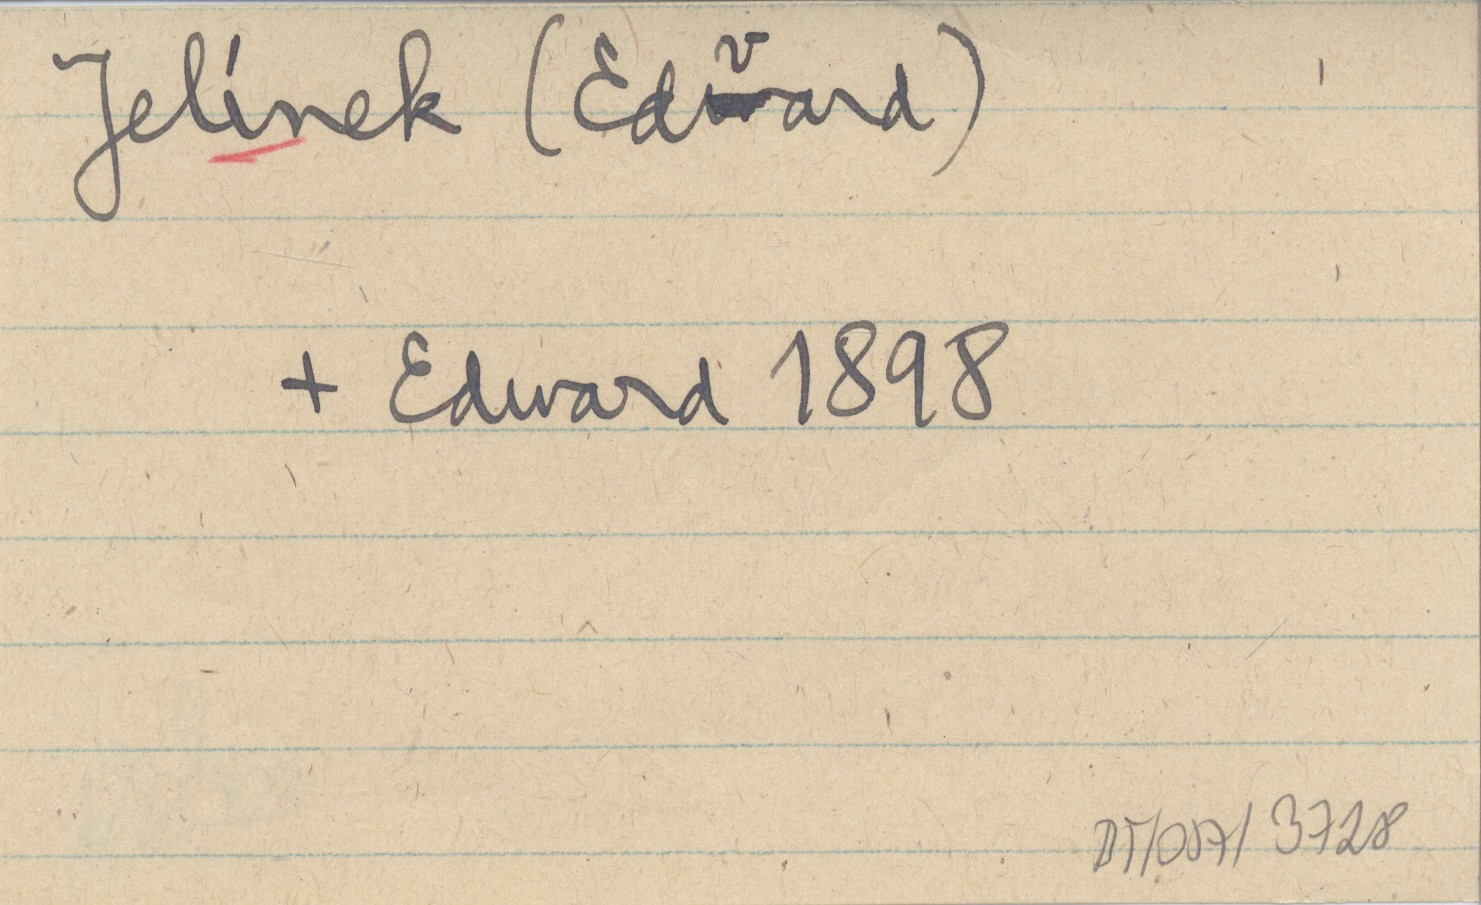 Jelínek (Edvard)
+ Edward 1898
DT/087/3728